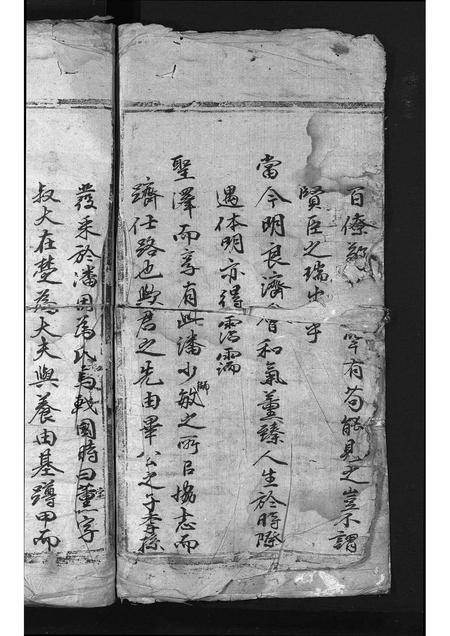 百僚
罕有苟能見之豈不謂
賢臣之瑞出乎
當今明良濟會和氣薰臻人生於時際
遇休明亦得霑濡
聖澤而享有此潘少敏師之所以協志而
躋仕路也歟君之先由畢公之子季孫
發采於潘因為氏焉戰國時曰薰字
叔大在楚為大夫與養由基蹲甲而